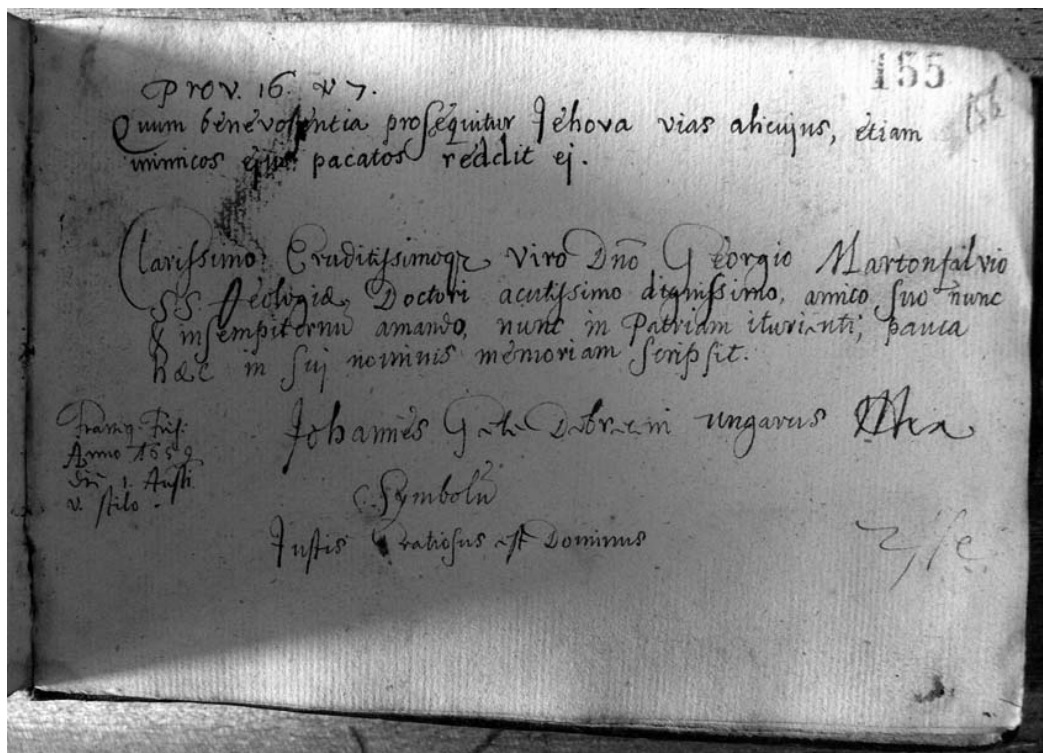 155
156
Prov. 16. v 7.
Quum benevolentia prosequitur Jehova vias alicujus, etiam
inimicos ejus pacatos reddit ej.
Clarissimo Eruditissimoqz viro Dno Georgio Martonfalvio
SS. Teologiæ Doctori acutissimo dignissimo, amico suo nunc
& in sempiternu amando, nunc in Patriam iturienti; pauca
hæc in suj nominis memoriam scripsit.
Johannes Debreceni ungarus
Franeq. Fris:
Anno 1659
die 1. Austi
v. stilo.
Symbolu
Justis Gratiosus est Dominus